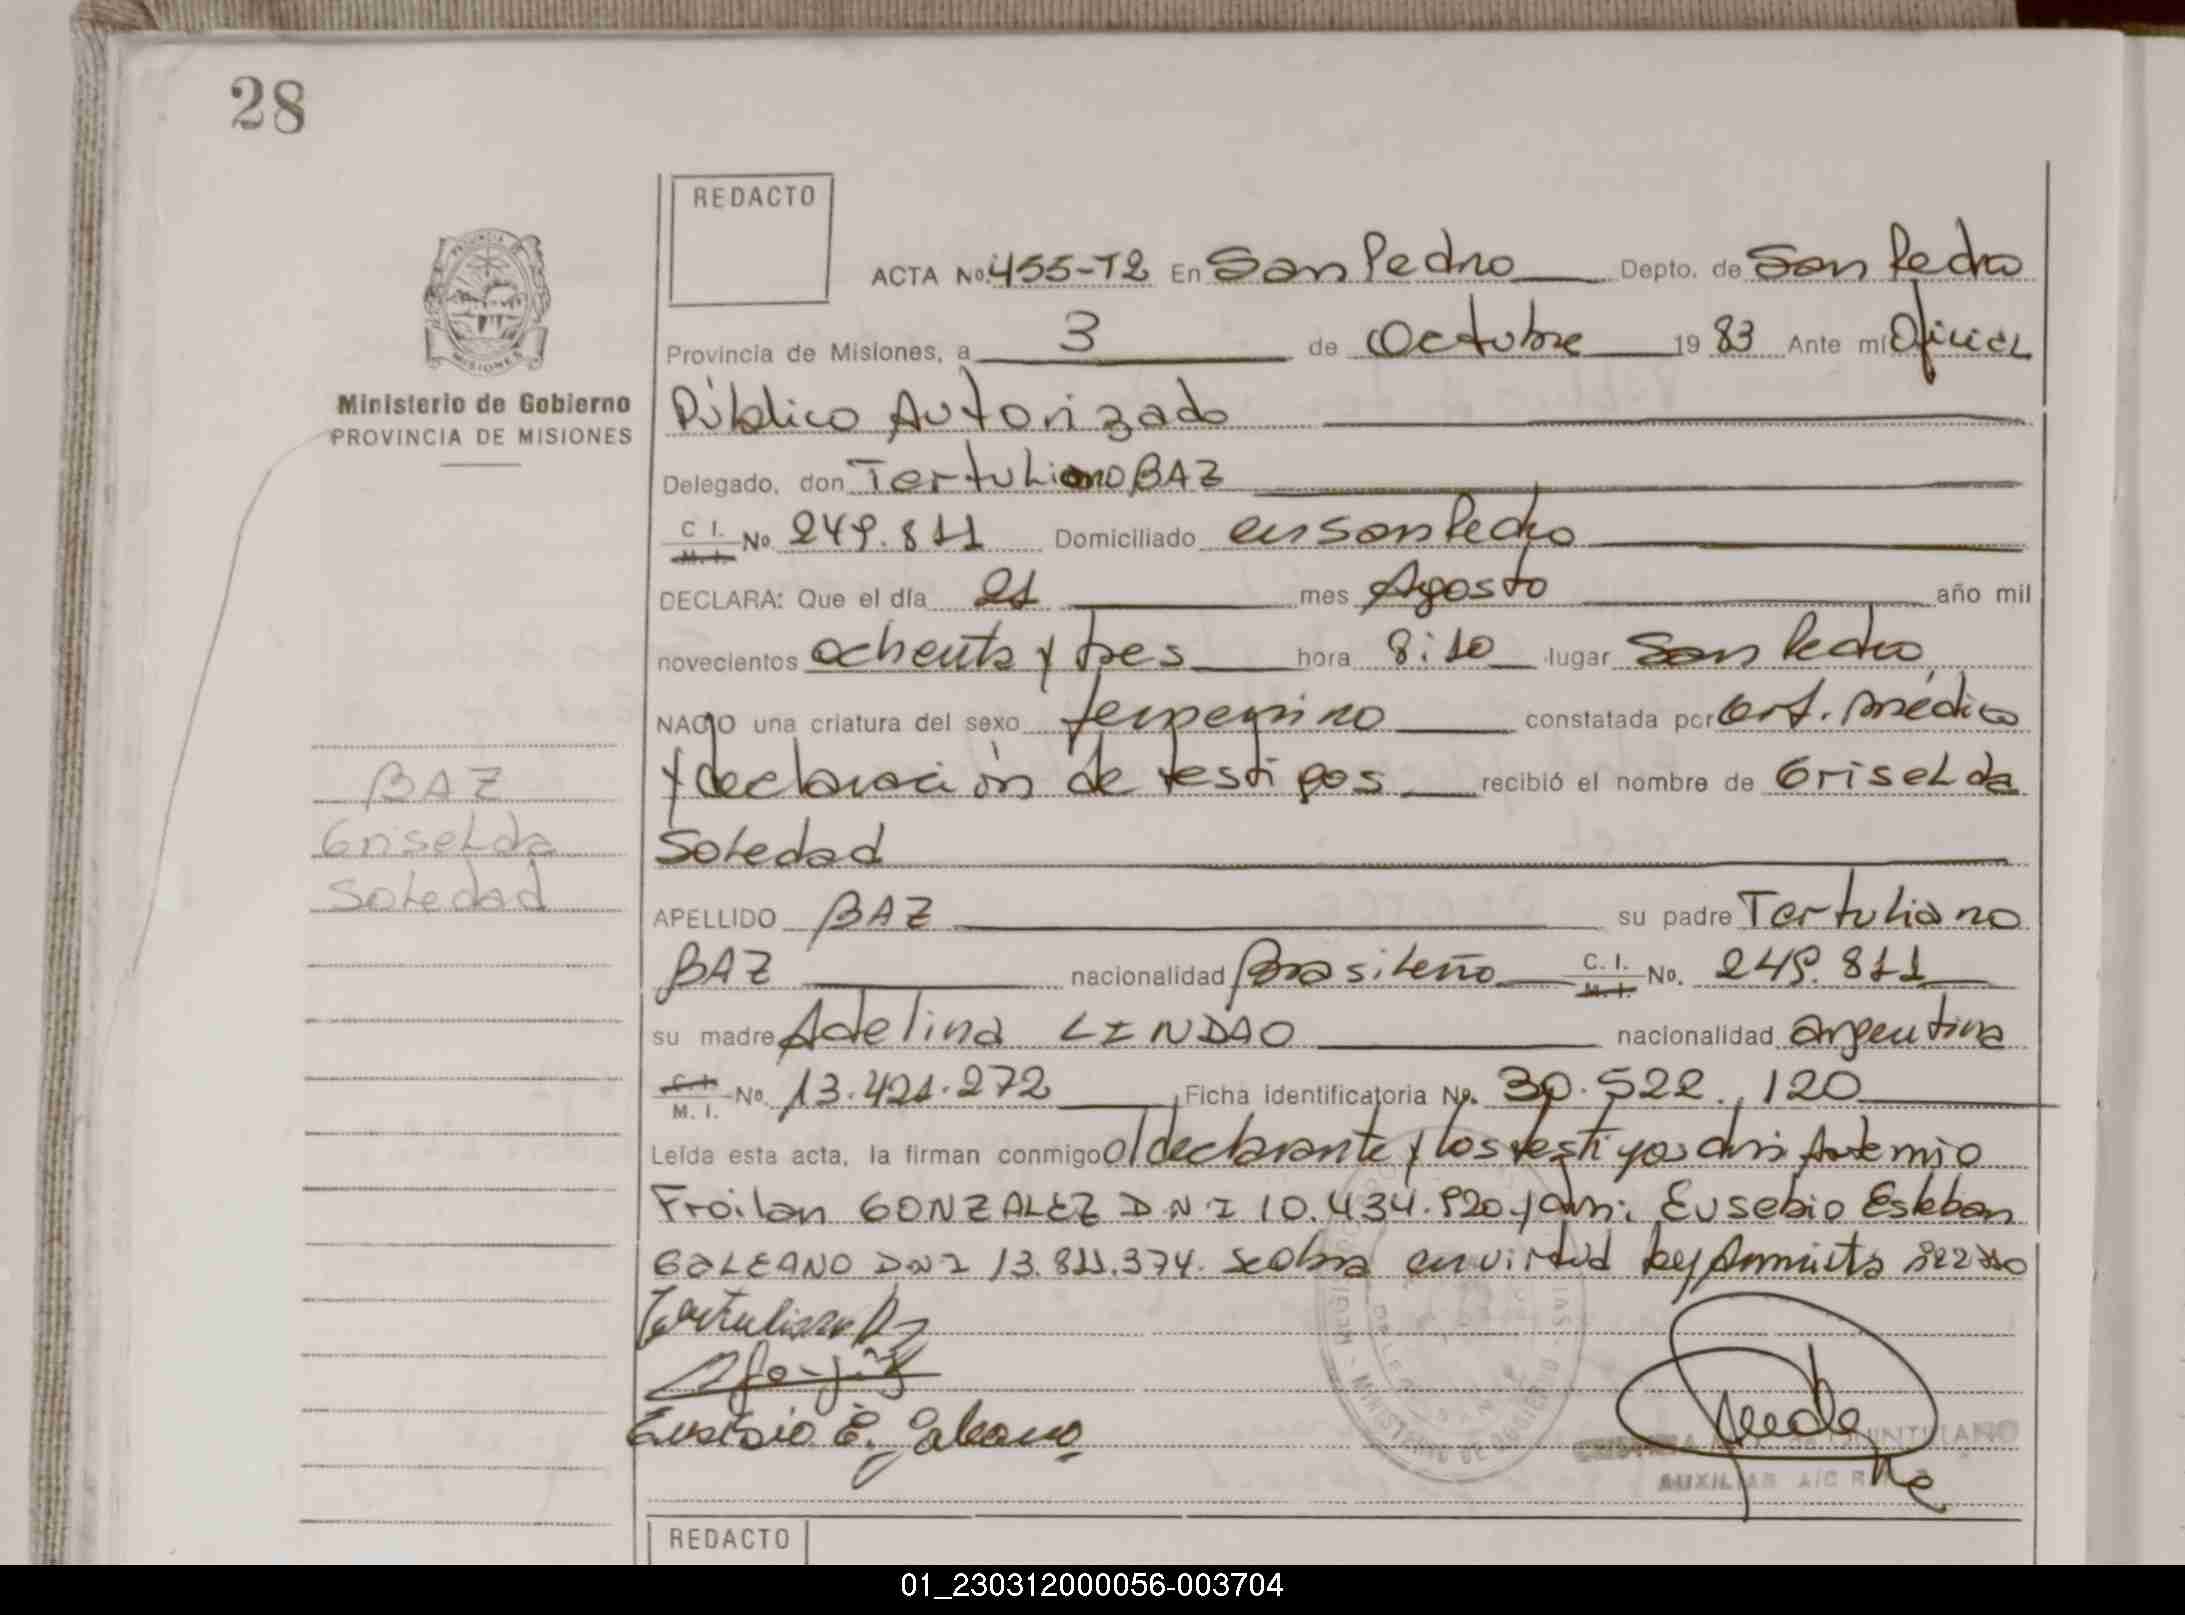 28
REDACTO
ACTA No. 455-T2 En San Pedro Depto. de San Pedro
Provincia de Misiones, a 3 de Octubre 1983 Ante mí Oficial
Ministerio de Gobierno
PROVINCIA DE MISIONES
Público Autorizado
Delegado, don Tertuliano BAZ
C I. M. I. No 249.811 Domiciliado en San Pedro
DECLARA: Que el día 21 mes Agosto año mil
novecientos ochenta y tres hora 8:10 lugar San Pedro
NACIO una criatura del sexo femenino constatada por Cert. médico
y declaración de testigos recibió el nombre de Griselda
Soledad
BAZ
Griselda
Soledad
APELLIDO BAZ su padre Tertuliano
BAZ nacionalidad Brasileño C. I. M. I. No. 249.811
su madre Adelina LINDAO nacionalidad argentina
C. I. M. I. No. 13.421.272 Ficha identificatoria No. 30.522.120
Leída esta acta, la firman conmigo el declarante y los testigos don Artemio
Froilan GONZALEZ D N I 10.434.920 y don: Eusebio Esteban
GALEANO DNI 13.811.374. Se labra en virtud ley Amnistia
Tertuliano Baz
Eusebio E. Galeano
MINISTERIO DE GOBIERNO
AUXILIAR A/C
REDACTO
01_230312000056-003704